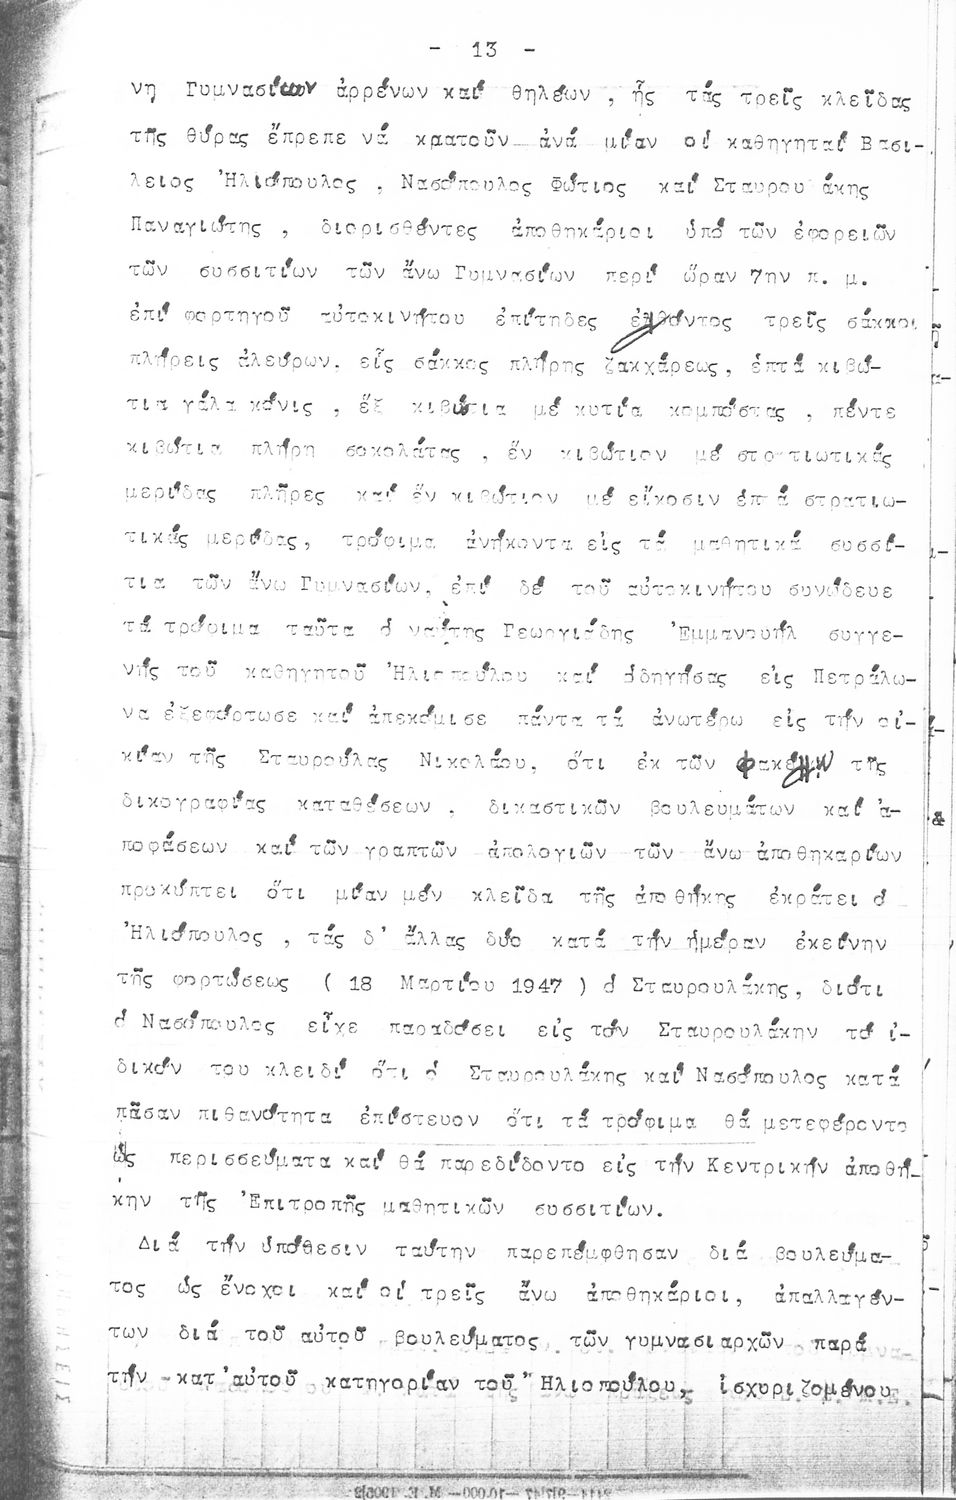 - 13 -
νη Γυμνασίων ἀρρένων καί θηλέων , ἧς τάς τρεῖς κλεῖδας
τῆς θύρας ἔπρεπε νά κρατοῦν ἀνά μίαν οἱ καθηγηταί Βασι-
λειος Ἡλιόπουλος , Νασόπουλος Φώτιος καί Σταυρου άκης
Παναγιώτης , διορισθέντες ἀποθηκάριοι ὑπό τῶν ἐφορειῶν
τῶν συσσιτίων τῶν ἄνω Γυμνασίων περί ὥραν 7ην π. μ.
ἐπί φορτηγοῦ αὐτοκινήτου ἐπίτηδες ἐλθόντος τρεῖς σάκκοι
πλήρεις ἀλεύρων. εἷς σάκκος πλήρης ζακχάρεως, ἑπτά κιβώ-
τια γάλα κόνις , ἕξ κιβώτια μέ κυτία κομπόστας , πέντε
κιβώτια πλήρη σοκολάτας , ἕν κιβώτιον μέ στρατιωτικάς
μερίδας πλῆρες καί ἕν κιβώτιον μέ εἴκοσιν ἑπτά στρατιω-
τικάς μερίδας, τρόφιμα ἀνήκοντα εἰς τά μαθητικά συσσί-
τια τῶν ἄνω Γυμνασίων, ἐπί δέ τοῦ αὐτοκινήτου συνώδευε
τά τρόφιμα ταῦτα ὁ ναύτης Γεωργιάδης Ἐμμανουήλ συγγε-
νής τοῦ καθηγητοῦ Ἡλιοπούλου καί ὁδηγήσας εἰς Πετράλω-
να ἐξεφόρτωσε καί ἀπεκόμισε πάντα τά ἀνωτέρω εἰς τήν οἰ-
κίαν τῆς Σταυρούλας Νικολάου, ὅτι ἐκ τῶν φακέλλων τῆς
δικογραφίας καταθέσεων , δικαστικῶν βουλευμάτων καί ἀ-
ποφάσεων καί τῶν γραπτῶν ἀπολογιῶν τῶν ἄνω ἀποθηκαρίων
προκύπτει ὅτι μίαν μέν κλεῖδα τῆς ἀποθήκης ἐκράτει ὁ
Ἡλιόπουλος , τάς δ' ἄλλας δύο κατά τήν ἡμέραν ἐκείνην
τῆς φορτώσεως ( 18 Μαρτίου 1947 ) ὁ Σταυρουλάκης, διότι
ὁ Νασόπουλος εἶχε παραδόσει εἰς τόν Σταυρουλάκην τό ἰ-
δικόν του κλειδί ὅτι ὁ Σταυρουλάκης καί Νασόπουλος κατά
πᾶσαν πιθανότητα ἐπίστευον ὅτι τά τρόφιμα θά μετεφέροντο
ὡς περισσεύματα καί θά παρεδίδοντο εἰς τήν Κεντρικήν ἀποθή-
κην τῆς Ἐπιτροπῆς μαθητικῶν συσσιτίων.
Διά τήν ὑπόθεσιν ταύτην παρεπέμφθησαν διά βουλεύμα-
τος ὡς ἔνοχοι καί οἱ τρεῖς ἄνω ἀποθηκάριοι, ἀπαλλαγέν-
των διά τοῦ αὐτοῦ βουλεύματος τῶν γυμνασιαρχῶν παρά
τήν κατ' αὐτοῦ κατηγορίαν τοῦ Ἡλιοπούλου, ἰσχυριζομένου